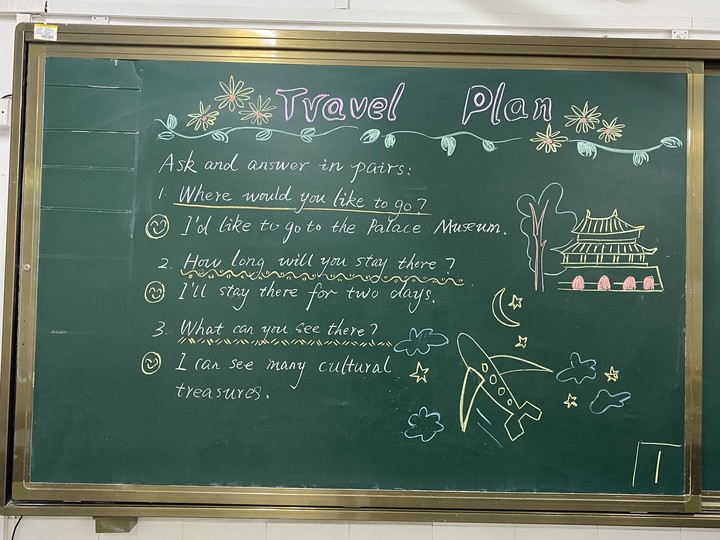 Travel Plan
Ask and answer in pairs:
1. Where would you like to go?
I'd like to go to the Palace Museum.
2. How long will you stay there?
I'll stay there for two days.
3. What can you see there?
I can see many cultural
treasures.
1